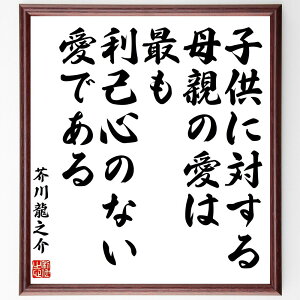 子供に対する
母親の愛は
最も
利己心のない
愛である
芥川龍之介